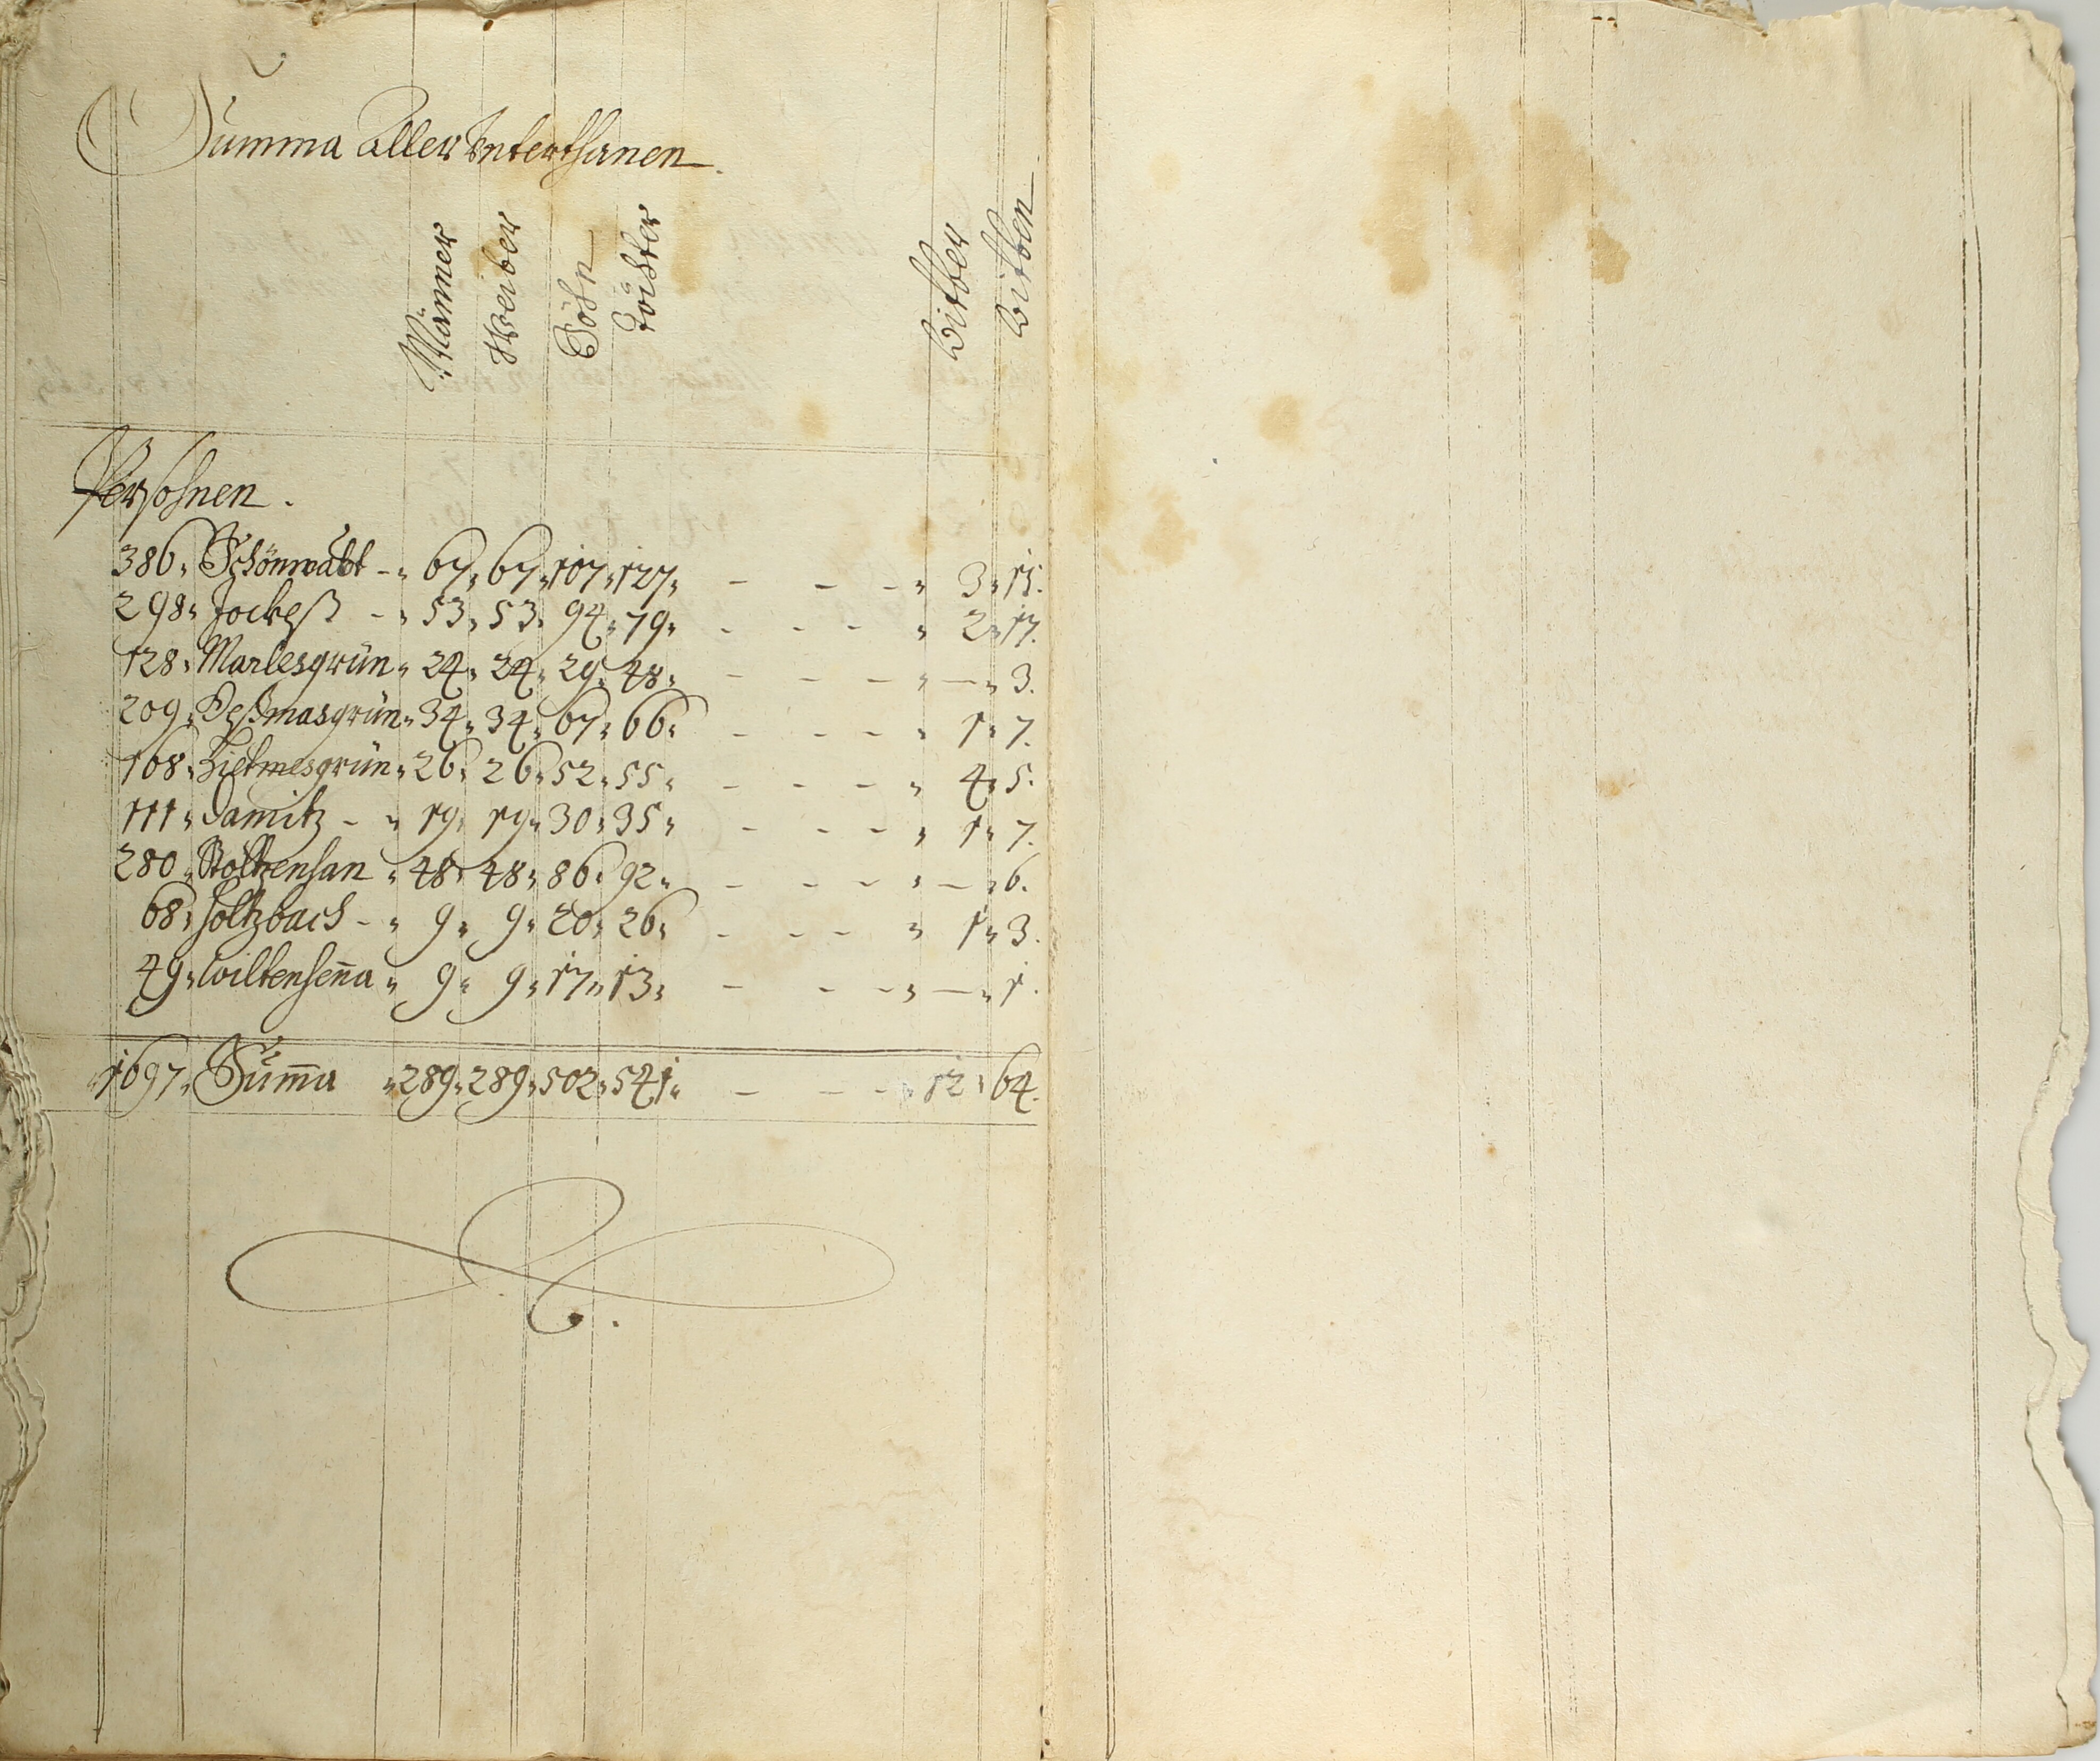 Summa Aller Unterthanen.
Männer Weiber Söhn Töchter Witber Witben
Persohnen.
386. Schönwaldt - 67. 67. 107. 127. - - - 3. 15.
298. Jockeß - 53. 53. 94. 79. - - - 2. 17.
128. Marlesgrün 24. 24. 29. 48. - - - — 3.
209. Deßmasgrün 34. 34. 67. 66. - - - 1. 7.
168. Zietmesgrün 26. 26. 52. 55. - - - 4. 5.
111. Damitz - 19. 19. 30. 35. - - - 1. 7.
280. Stoltzenhan 48. 48. 86. 92. - - - — 6.
68. Holtzbach - 9. 9. 20. 26. - - - 1. 3.
49. Wiltenhen̄a 9. 9. 17. 13. - - - — 1.
1697. Sum̄a 289. 289. 502. 541. - - - 12. 64.